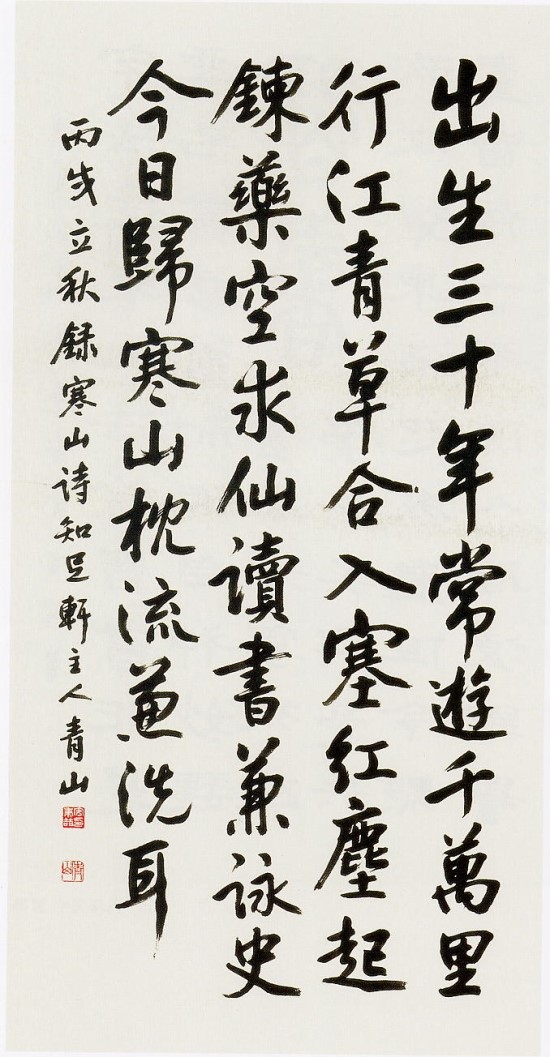 出生三十年常遊千萬里
行江青草合入塞紅塵起
鍊藥空求仙讀書兼詠史
今日歸寒山枕流兼洗耳
丙戌立秋録寒山诗知足軒主人青山